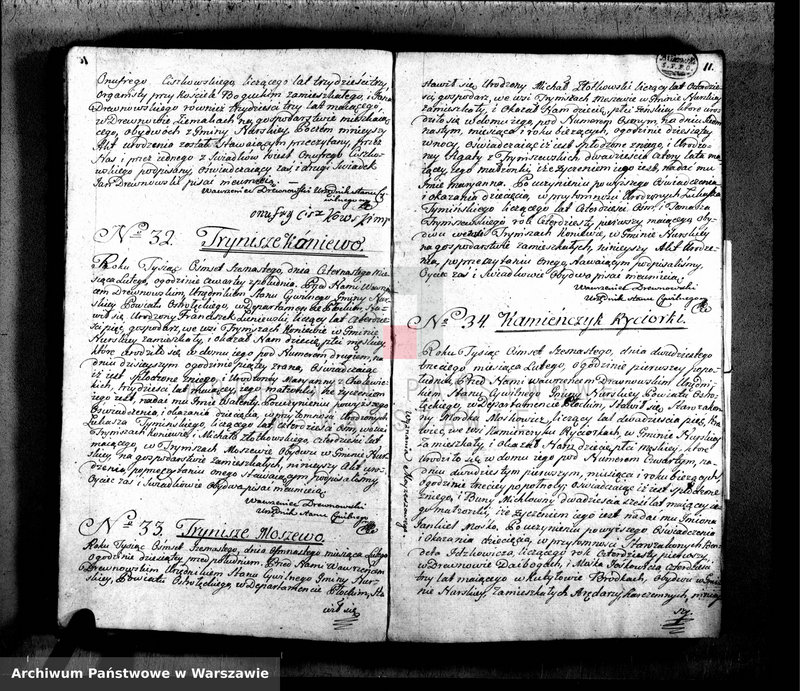 Onufrego Ciszkowskiego liczącego lat trzydzieści trzy,
Organisty przy Kościele Boguckim zamieszkałego, i Jana
Drewnowskiego również trzydzieści trzy lat mającego,
w Drewnowie Ziemakach na gospodarstwie mieszkaią-
cego, obydwóch z Gminy Nurskiey Poczém ninieyszy
Akt urodzenia został Stawaiącym przeczytany, przez
Nas i przez iednego z Świadków to iest Onufrego Ciszko-
wskiego podpisany, oświadczaiąc zaś i drugi Świadek
Jan Drewnowski pisać nieumieią.
Wawrzeniec Drewnowski Urzędnik Stanu Cy-
wilnego
onufry Cisz kowski mp
No 32. Trynisze Koniewo.
Roku Tysiąc Ośmset Szesnastego, dnia Czternastego Mie-
siąca Lutego, ogodzinie Czwartey z południa. Przed Nami Wawrzeń-
cem Drewnowskim, Urzędnikiem Stanu Cywilnego Gminy Nur-
skiey Powiatu Ostrołęckiego, w Departamencie Płockim, Sta-
wił się Urodzony Franciszek Koniewski, liczący lat czterdzie-
ści pięć, gospodarz, we wsi Tryniszach Koniewie w Gminie
Nurskiey zamieszkały, i okazał Nam dziecię, płci męskiey,
które urodziło się w domu iego pod Numerem drugim, na
dniu dzisieyszym ogodzinie piątey zrana, Oświadczaiąc
iż iest spłodzone z niego, i Urodzoney Maryanny z
kich, trzydzieści lat maiącey, iego małżonki, iże życzeniem
iego iest, nadać mu Imie Walenty. Po uczynieniu powyższego
Oświadczenia, i okazania dziecięcia, w przytomności Urodzonych
Łukasza Tymińskiego, liczącego lat czterdzieści Ośm, w wsi
Tryniszach Koniewie, i Michała Złotkowskiego, czterdzieści lat
maiącego, w Tryniszach Moszewie Obydwu w Gminie Nur-
skiey, na gospodarstwie zamieszkałych, ninieyszy Akt uro-
dzenia, po przeczytaniu onego Stawaiącym podpisaliśmy
Oyciec zaś i Świadkowie Obydwa pisać nieumieią.
Wawrzeniec Drewnowski
Urzędnik Stanu Cywilnego
No 33. Trynisze Moszewo.
Roku Tysiąc Ośmset Szesnastego, dnia Ośmnastego miesiąca Lutego
Ogodzinie dziesiątey przed południem. Przed Nami Wawrzeńcem
Drewnowskim Urzędnikiem Stanu Cywilnego Gminy Nur-
skiey, Powiatu Ostrołęckiego, w Departamencie Płockim, Sta-
wił się
11.
stawił się, Urodzony Michał Złotkowski liczący lat Czterdzie-
ści gospodarz, we wsi Tryniszach Moszewie w Gminie Nurskiey
zamieszkały, i okazał Nam dziecię, płci żeńskiey, które uro-
dziło się w domu iego, pod Numerem Osmym, na dniu
nastym, miesiąca i roku bieżących, ogodzinie dziesiątey
w nocy, Oświadczaiąc iż iest spłodzone z niego, i Urodzo-
ney Agaty z Tryniszewskich dwadzieścia cztery lata ma-
iącey, iego małżonki, iże życzeniem iego iest, nadać mu
Imie Maryanna. Po uczynieniu powyższego Oświadczenia
i okazania dziecięcia, w przytomności Urodzonych Łukasza
Tymińskiego liczącego lat Czterdzieści Ośm, i
Tryniszewskiego rok Czterdziesty pierwszy maiącego, oby-
dwu we wsi Tryniszach Koniewie, w Gminie Nurskiey
na gospodarstwie zamieszkałych, ninieyszy Akt Urodze-
nia, po przeczytaniu onego, stawaiącym podpisaliśmy.
Oyciec zaś i Świadkowie Obydwa pisać nieumieią.
Wawrzeniec Drewnowski
Urzędnik Stanu Cywilnego
No 34. Kamieńczyk Ryciorki.
Roku Tysiąc Ośmset Szesnastego, dnia dwudziestego
trzeciego miesiąca Lutego, ogodzinie pierwszey popo-
łudniu. Przed Nami Wawrzeńcem Drewnowskim Urzędni-
kiem Stanu Cywilnego Gminy Nurskiey Powiatu Ostro-
łęckiego, w Departamencie Płockim, Stawił się, Starozakon-
ny Mordka Moskowicz, liczący lat dwadzieścia pięć, Kra-
wiec, we wsi Kamieńczyku Ryciorkach, w Gminie Nurskiey
zamieszkały, i okazał Nam dziecię, płci męskiey, które
urodziło się w domu iego pod Numerem Czwartym, na
dniu dwudziestym pierwszym, miesiąca i roku bieżących,
ogodzinie trzeciey popołudniu; Oświadczaiąc iż iest spłodzone
z niego, i Buny Michlówny dwadzieścia sześć lat maiącey ie-
go małżonki, iże życzeniem iego iest nadać mu Imiona
Jankiel Mosko, Po uczynieniu powyższego Oświadczenia
i okazania dziecięcia, w przytomności, Starozakonnych
Ickowicza, liczącego rok Czterdziesty pierwszy,
w Drewnowie Daibogach, i Maska Joskowicza czterdzieści
trzy lat maiącego w Kutyłowie Bródkach, Obydwu w Gmi-
nie Nurskiey, zamieszkałych Arędarzy karczemnych, niniey-
szy
Archiwum Państwowe w Warszawie